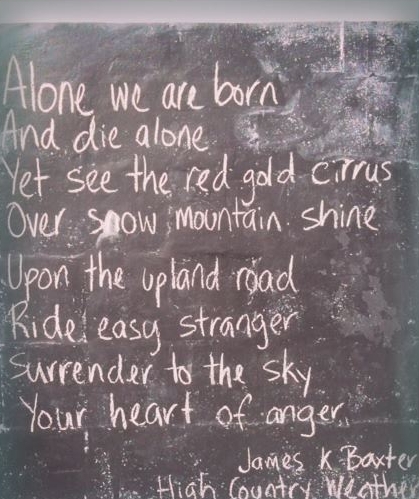 Alone we are born
And die alone
Yet see the red gold cirrus
Over snow mountain shine
Upon the upland road
Ride easy stranger
Surrender to the sky
Your heart of anger.
James K Baxter
High Country Weather